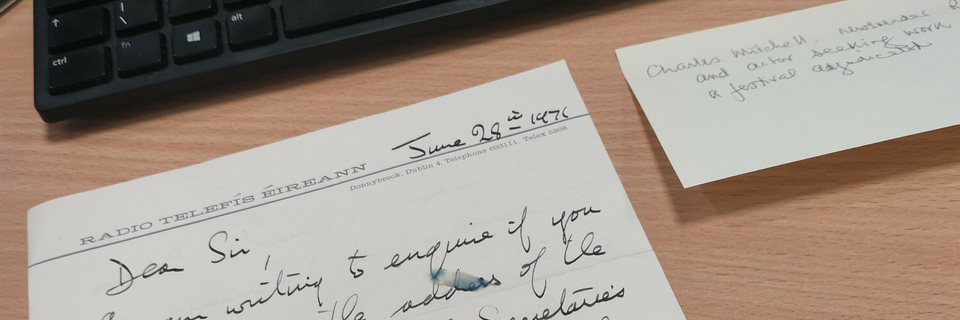 alt
fn
ctrl
June 28th 1971
RADIO TELEFÍS ÉIREANN
Donnybrook, Dublin 4. Telephone 693111. Telex 5268
Dear Sir,
writing to enquire if you
the address of the
Secretaries
Charles Mitchell. Newsreader
and actor seeking work
a festival adjudicator